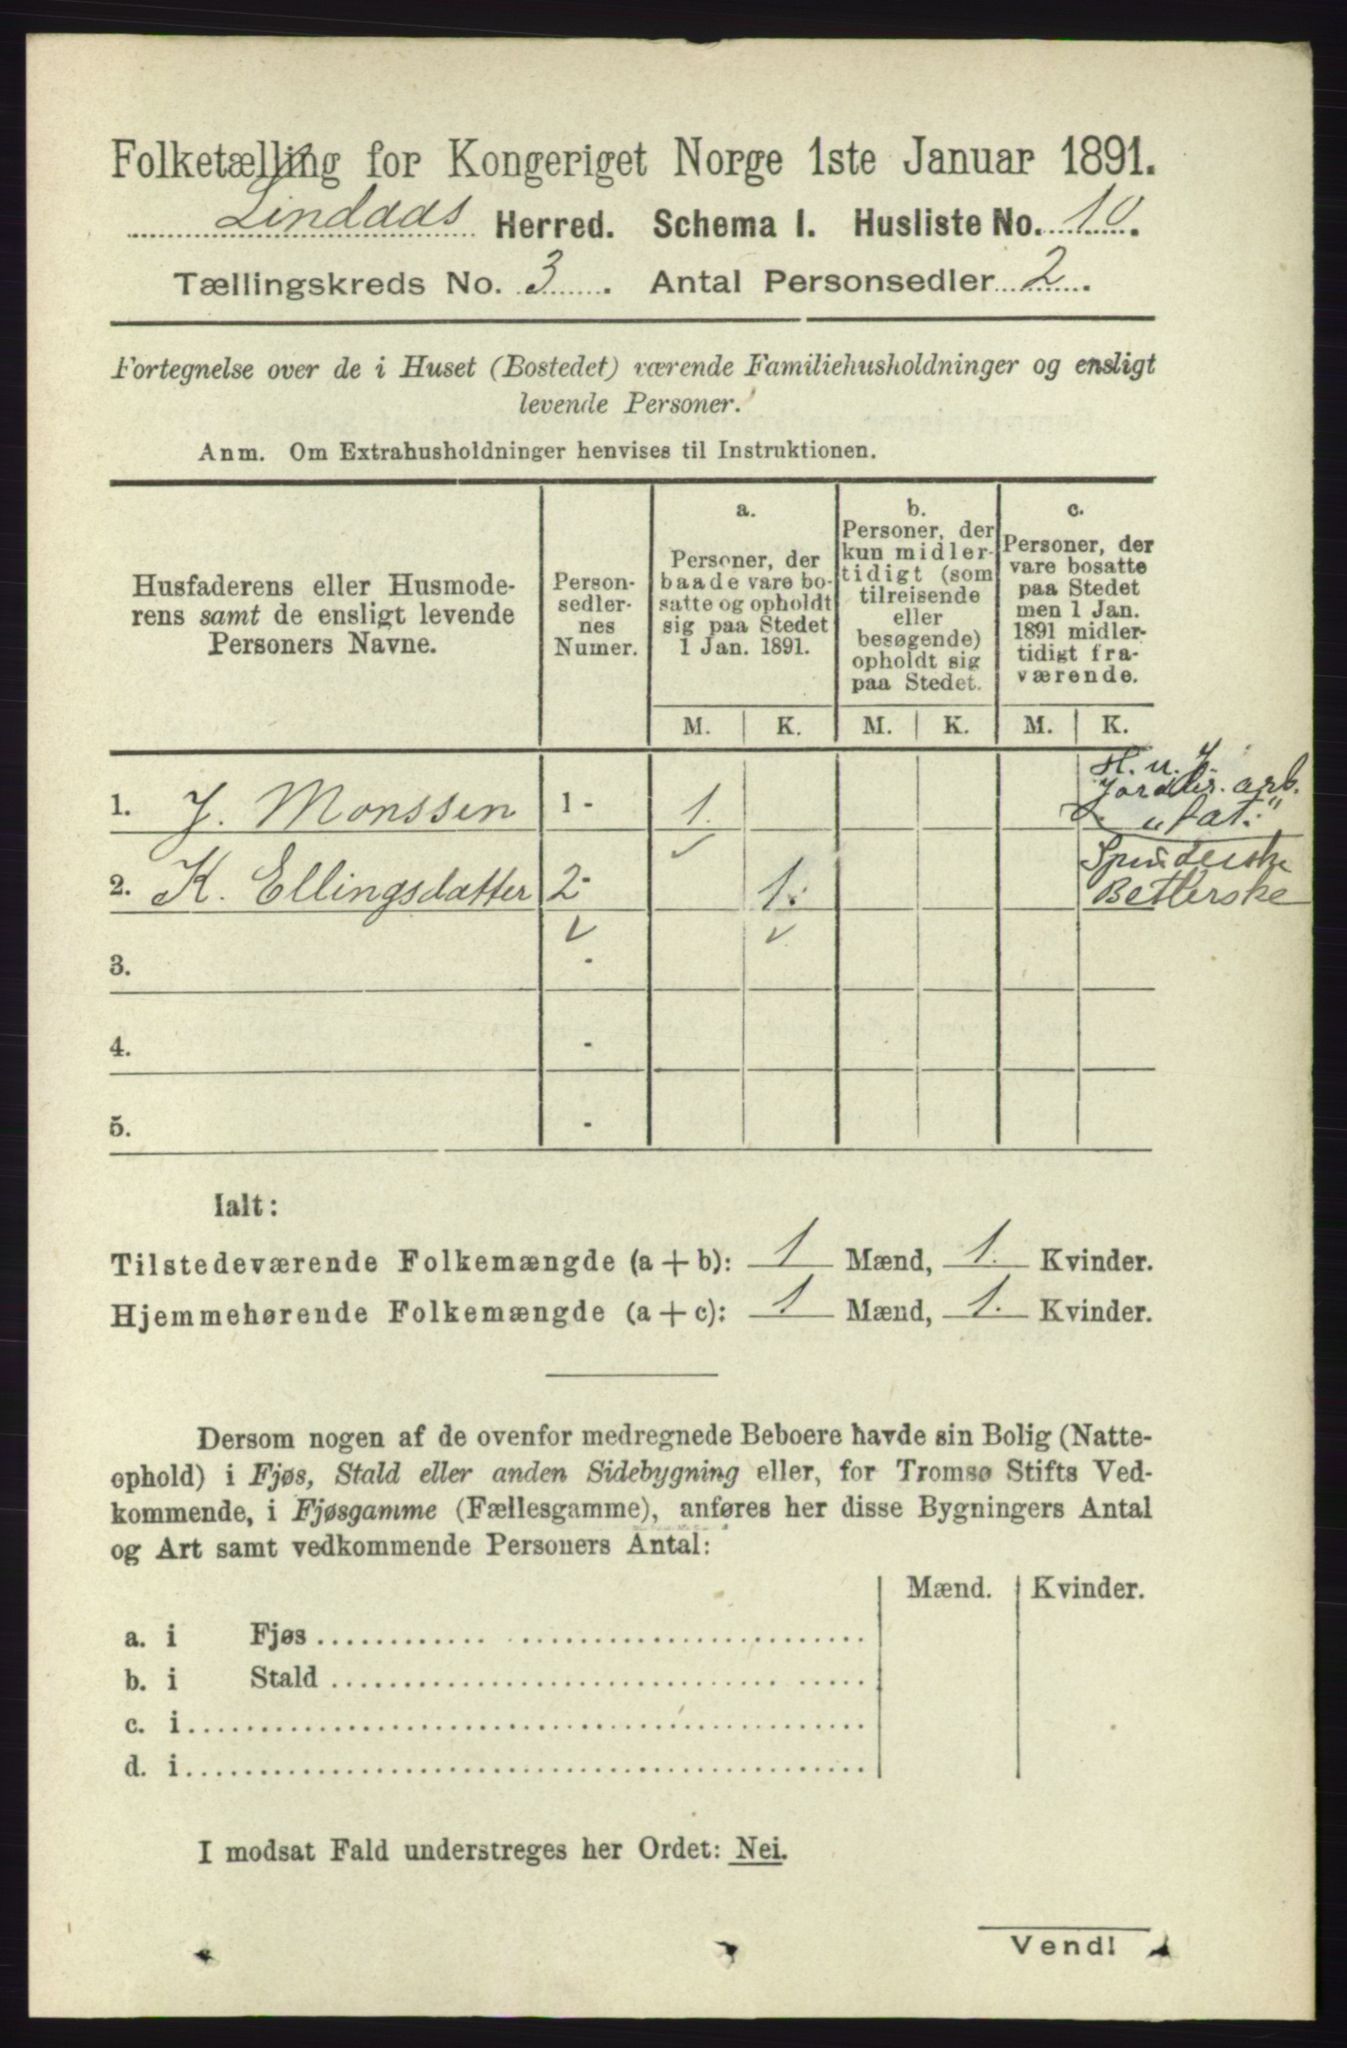 Folketælling for Kongeriget Norge 1ste Januar 1891.
Lindaas Herred. Schema I. Husliste No. 10.
Tællingskreds No. 3. Antal Personsedler 2.
Fortegnelse over de i Huset (Bostedet) værende Familiehusholdninger og ensligt
levende Personer.
Anm. Om Extrahusholdninger henvises til Instruktionen.
Husfaderens eller Husmode-
rens samt de ensligt levende
Personers Navne.
Person-
sedler-
nes
Numer.
a.
Personer, der
baade vare bo-
satte og opholdt
sig paa Stedet
1 Jan. 1891.
b.
Personer, der
kun midler-
tidigt (som
tilreisende
eller
besøgende)
opholdt sig
paa Stedet.
c.
Personer, der
vare bosatte
paa Stedet
men 1 Jan.
1891 midler-
tidigt fra-
værende.
M. K. M. K. M. K.
H. u. J.
1. J. Monssen 1 - 1.
arb.
Spinderske
2. K. Ellingsdatter 2 - 1.
Betlerske
3. -
4. -
5. -
Ialt:
Tilstedeværende Folkemængde (a + b): 1 Mænd, 1. Kvinder.
Hjemmehørende Folkemængde (a + c): 1 Mænd, 1. Kvinder.
Dersom nogen af de ovenfor medregnede Beboere havde sin Bolig (Natte-
ophold) i Fjøs, Stald eller anden Sidebygning eller, for Tromsø Stifts Ved-
kommende, i Fjøsgamme (Fællesgamme), anføres her disse Bygningers Antal
og Art samt vedkommende Personers Antal:
Mænd. Kvinder.
a. i Fjøs
b. i Stald
c. i
d. i
I modsat Fald understreges her Ordet: Nei.
Vend!